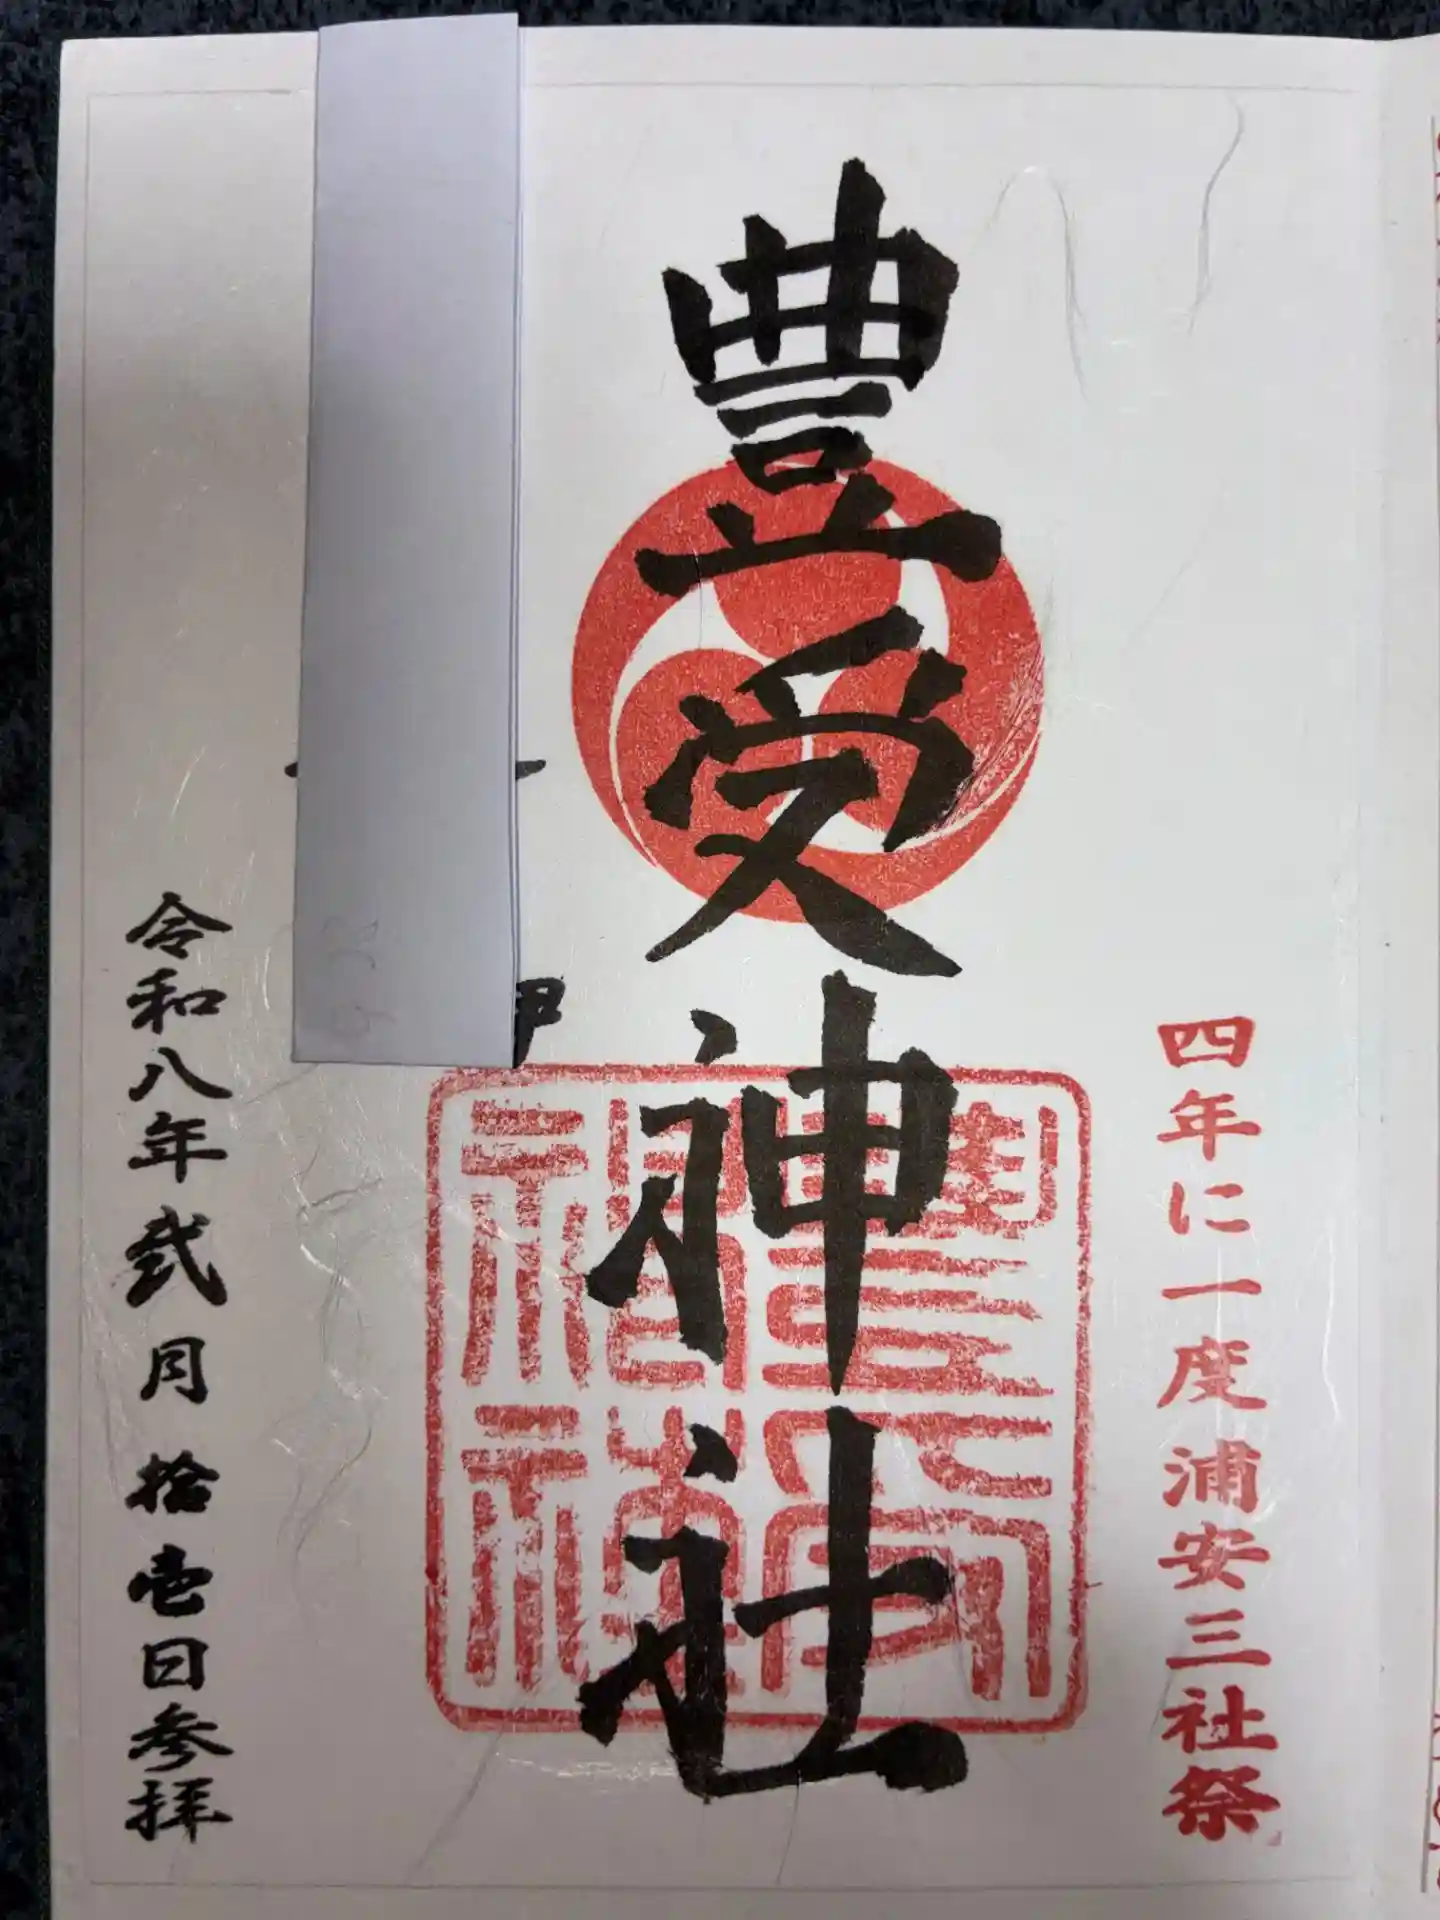 四年に一度浦安三社祭
豊受神社
令和八年弐月拾壱日参拝